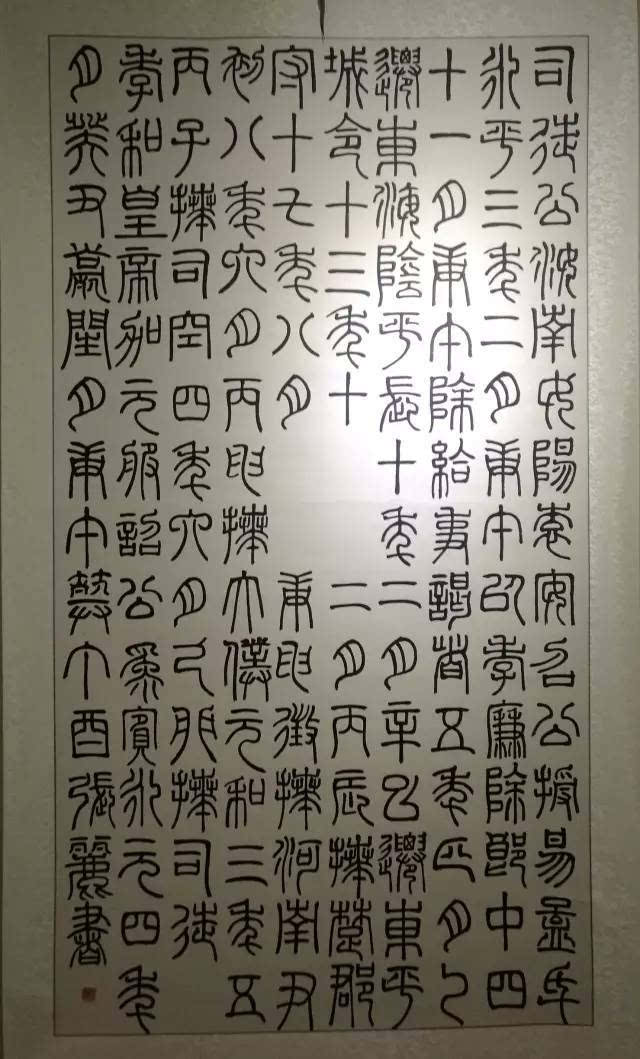 司徒公汝南女陽袁安召公授易孟氏
永平三年二月庚午以孝廉除郎中四
十一月庚午除給事謁者五年四月乙
遷東海陰平長十年二月辛巳遷東平
城令十三年十二月丙辰拜楚郡
守十七年八月庚申徵拜河南尹
初八年六月丙申拜太僕元和三年五
丙子拜司空四年六月己卯拜司徒
孝和皇帝加元服詔公為賓永元四年
月癸丑薨閏月庚午葬丁酉張麗書